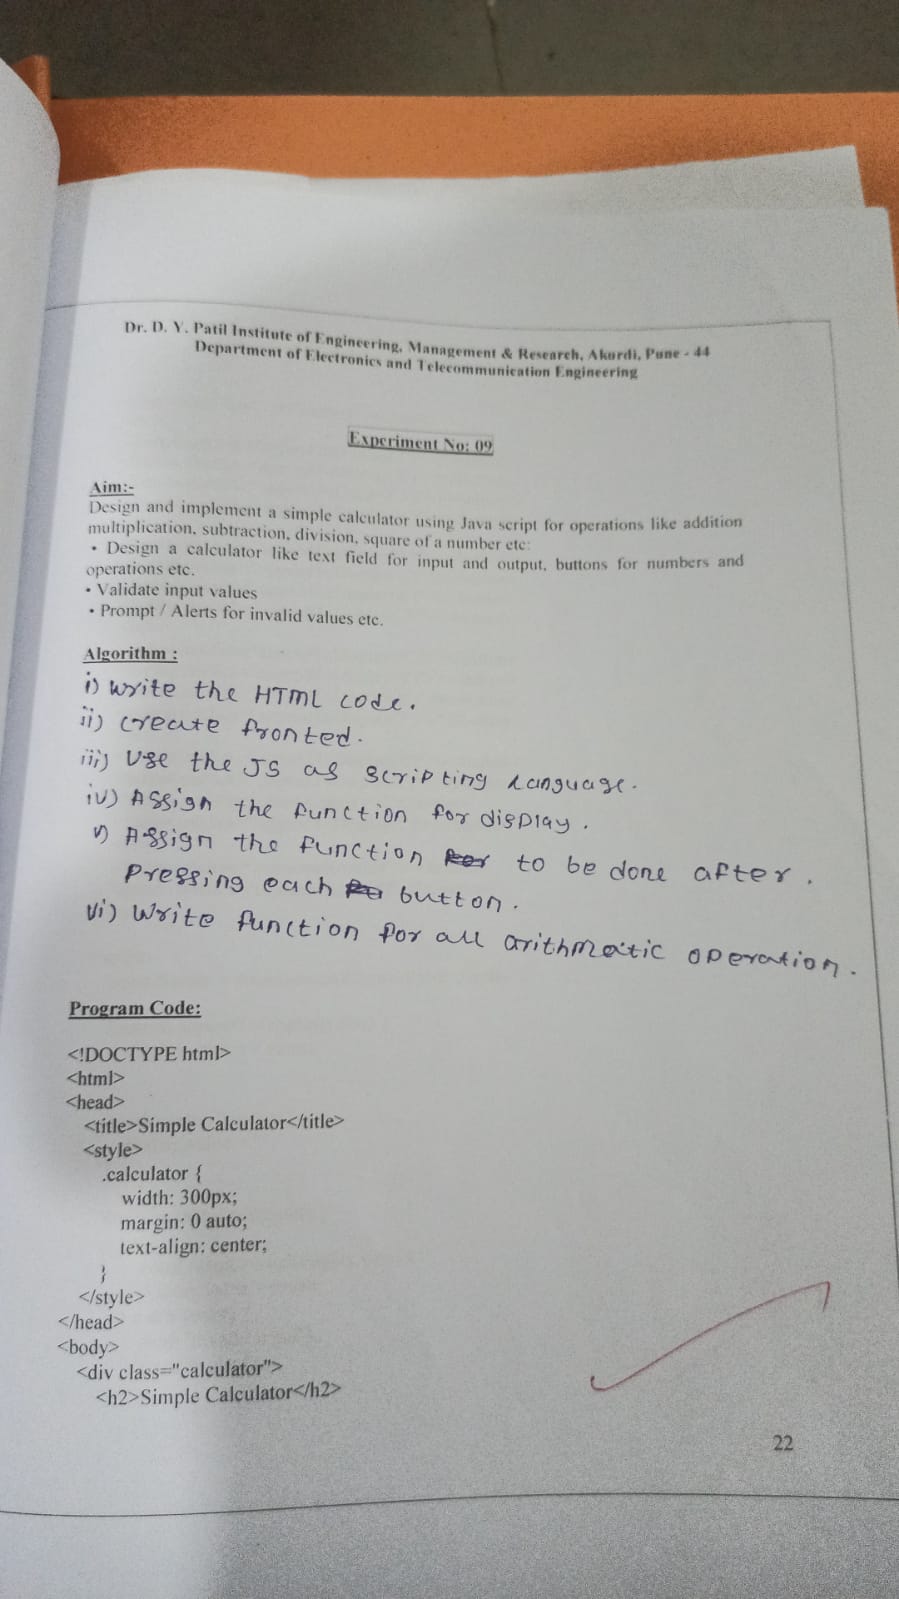 Dr. D. Y. Patil Institute of Engineering, Management & Research, Akurdi, Pune - 44
Department of Electronics and Telecommunication Engineering
Experiment No: 09
Aim:-
Design and implement a simple calculator using Java script for operations like addition
multiplication, subtraction, division, square of a number etc:
• Design a calculator like text field for input and output, buttons for numbers and
operations etc.
• Validate input values
• Prompt / Alerts for invalid values etc.
Algorithm :
i) Write the HTML code.
ii) Create fronted.
iii) Use the JS as scripting language.
iv) Assign the function for display.
v) Assign the function to be done after.
pressing each button.
vi) Write function for all arithmatic operation.
Program Code:
<!DOCTYPE html>
<html>
<head>
<title>Simple Calculator</title>
<style>
.calculator {
width: 300px;
margin: 0 auto;
text-align: center;
}
</style>
</head>
<body>
<div class="calculator">
<h2>Simple Calculator</h2>
22